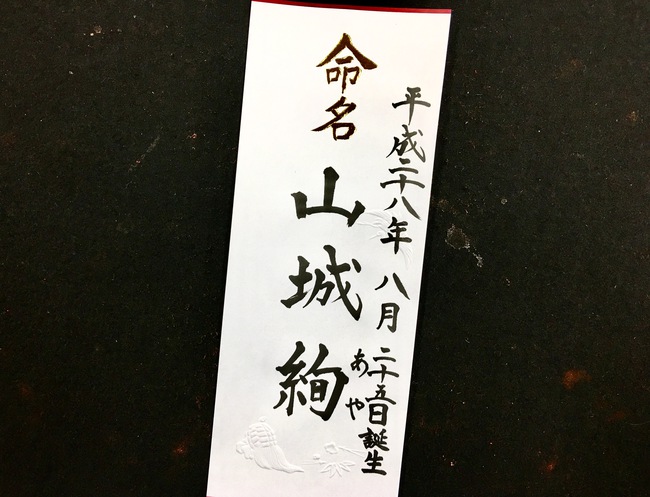 平成二十八年 八月 二十五日誕生
命名
山城絢
あや